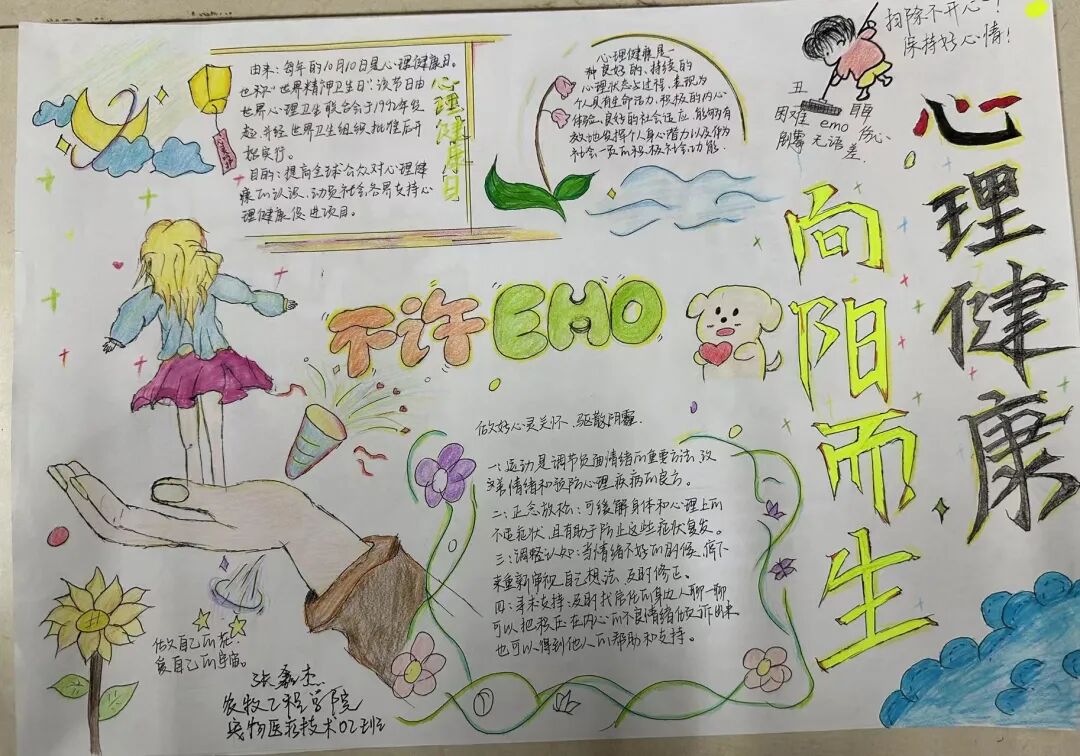 扫除不开心!
保持好心情!
丑
困难 emo 伤心
剧 无语 差
心理健康
向阳而生
由来:每年的10月10日是心理健康日。
也称"世界精神卫生日",该节日由
世界心理卫生联合会于1992年发
起,并经世界卫生组织批准后开
始实行。
目的:提高全球公众对心理健
康的认识,动员社会各界支持心
理健康促进项目。
心理健康日
心理健康是一
种良好的、持续的
心理状态与过程,表现为
个人具有生命活力、积极的内心
体验、良好的社会适应,能够有
效地发挥个人身心潜力以及作为
社会一员的积极社会功能。
不许EMO
做好心灵关怀,驱散阴霾.
一:运动是调节负面情绪的重要方法,改
善情绪和预防心理疾病的良方。
二:正念放松:可缓解身体和心理上的
不适症状,且有助于防止这些症状复发。
三:调整认知:当情绪不好的时候,停下
来重新审视自己想法,及时修正。
四:寻求支持:及时找信任的身边人聊一聊
可以把积压在内心的不良情绪倾诉出来
也可以得到他人的帮助和支持。
做自己的花
爱自己的宇宙。
张鑫杰
农牧工程学院
宠物医疗技术02班